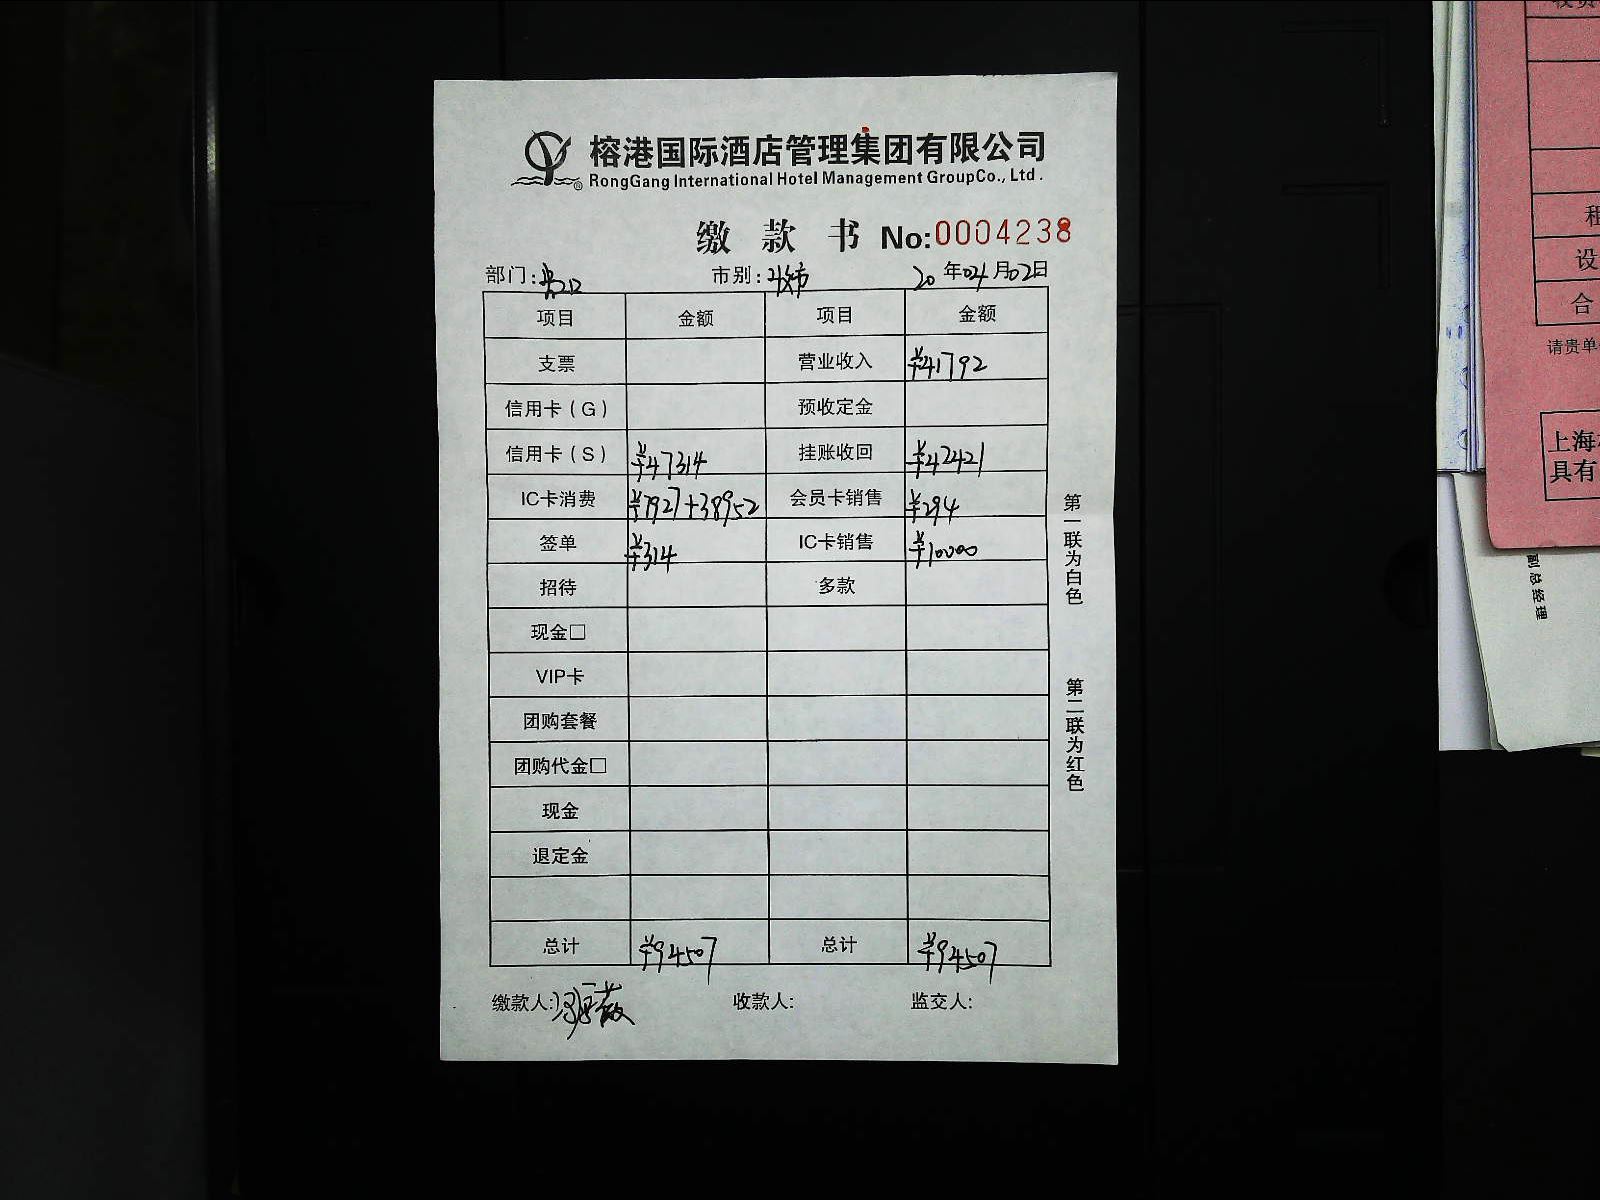 榕港国际酒店管理集团有限公司
RongGang International Hotel Management GroupCo., Ltd.
缴款书 No:0004238
部门: 市别: 20年04月02日
项目 金额 项目 金额
支票 营业收入 ¥41792
信用卡(G) 预收定金
信用卡(S) ¥47314 挂账收回 ¥42421
IC卡消费 ¥7927+38952 会员卡销售 ¥294
签单 ¥314 IC卡销售 ¥10000
招待 多款
现金□
VIP卡
团购套餐
团购代金□
现金
退定金
总计 ¥94507 总计 ¥94507
缴款人: 收款人: 监交人:
第一联为白色
第二联为红色
租
设
合
请贵单
上海
具有
副总经理